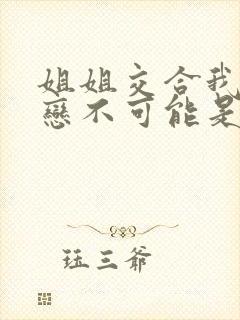 姐姐交合我
戀不可能是
珏三爺